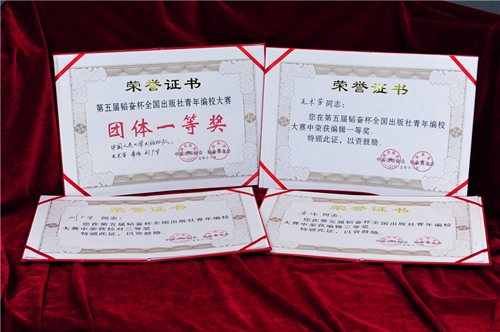 荣誉证书
第五届韬奋杯全国出版社青年编校大赛
团体一等奖
中国人民大学出版社队
荣誉证书
同志：
您在第五届韬奋杯全国出版社青年编校
大赛中荣获编辑一等奖。
特颁此证，以资鼓励。
荣誉证书
同志：
您在第五届韬奋杯全国出版社青年编校
大赛中荣获校对二等奖。
特颁此证，以资鼓励。
荣誉证书
李伟 同志：
您在第五届韬奋杯全国出版社青年编校
大赛中荣获编辑三等奖。
特颁此证，以资鼓励。